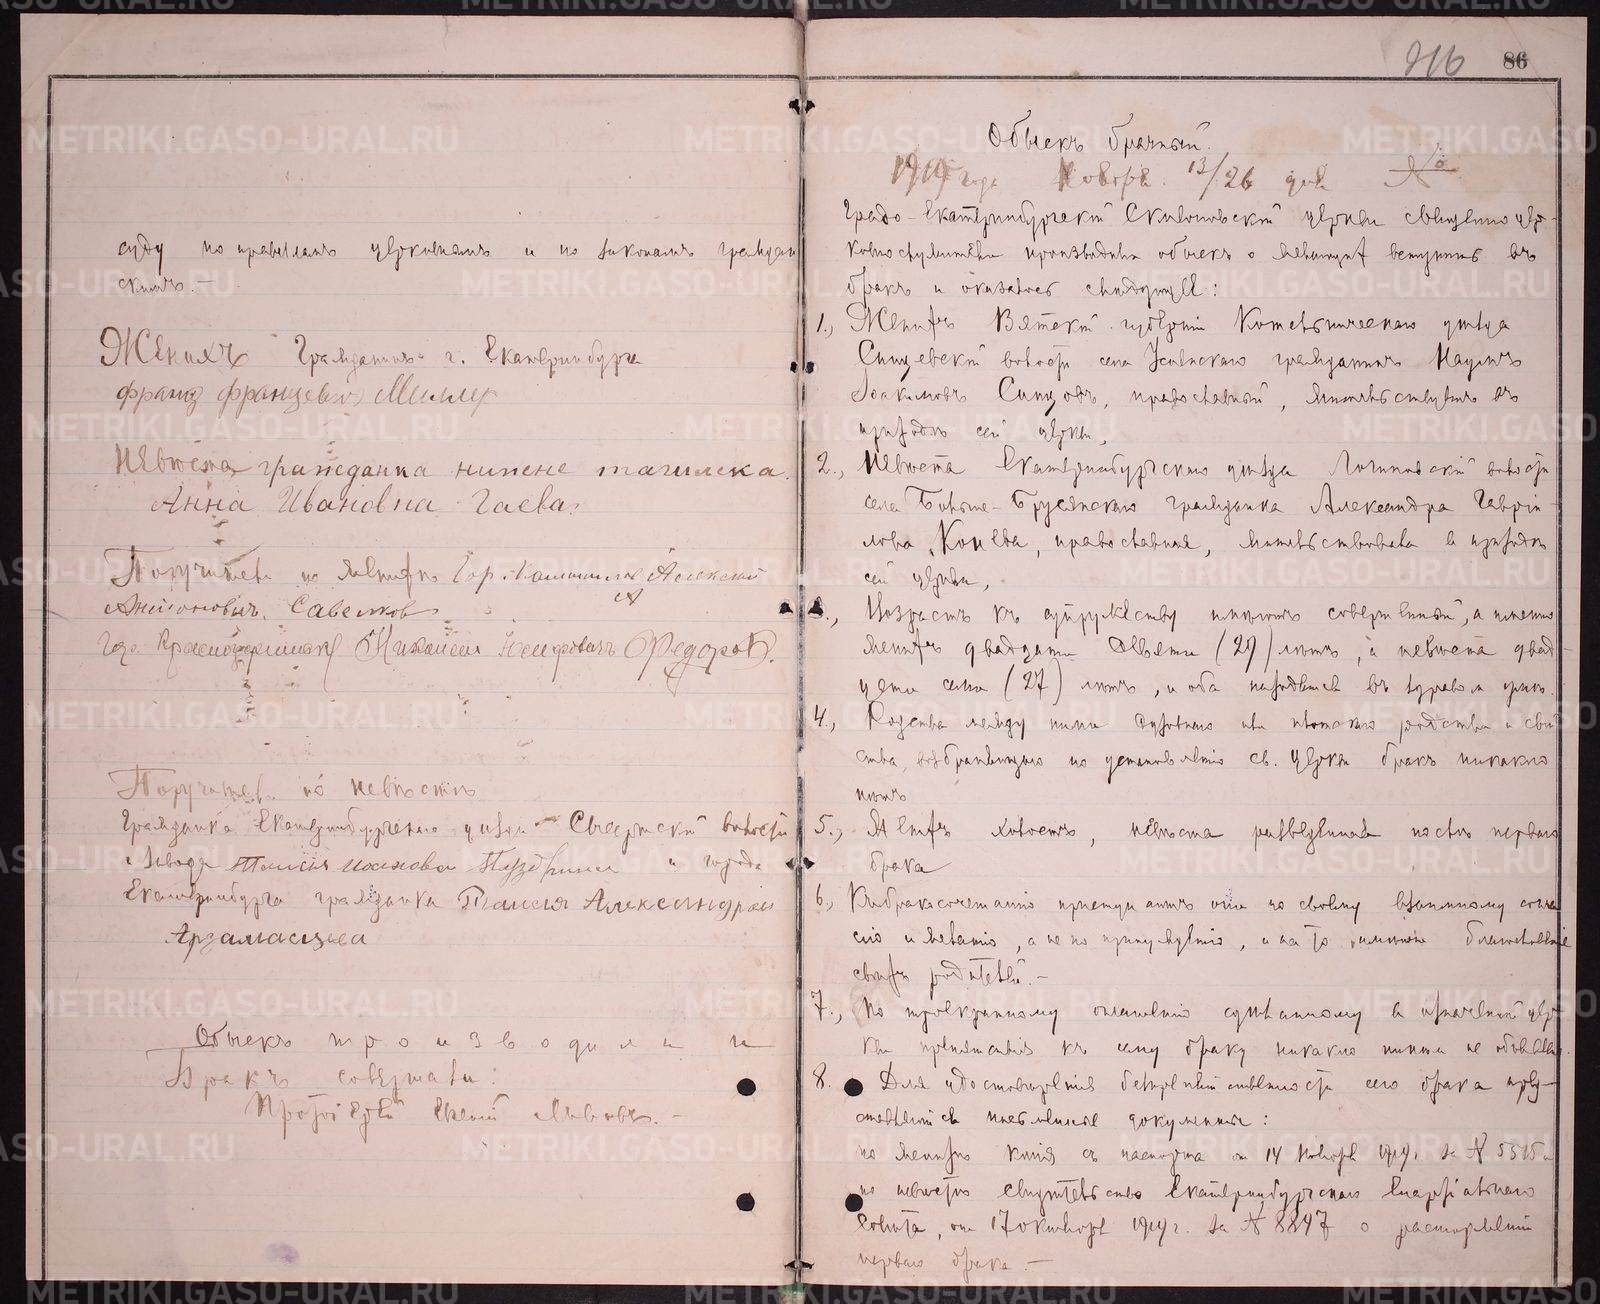 суду по правиламъ церковнымъ и по законамъ граждан
скимъ. —
Женихъ Гражданинъ г. Екатеринбурга
Франц Францевич Миллер
Невеста гражданка нижне тагилска
Анна Ивановна Гаева
Поручители по женихе Гор. Камышлов Алексей
Антонович Савелков
Гор. Михаил Федоров.
Поручители по невесте
Гражданка Екатеринбургскаго уезда Сысертской волости
и завода Таисия и города
Екатеринбурга гражданка Таисия Александрова
Арзамасцева
Обыскъ производили и
Бракъ совершали:
Протоіерей Львовъ. —
216 86
Обыскъ брачный.
1919 года Ноября 13/26 дня №
Градо-Екатеринбургской Симеоновской церкви священноцер-
ковнослужители производили обыскъ о желающих вступить въ
бракъ и оказалось следующее:
1., Женихъ Вятской губерніи Котельническаго уезда
волости села Успенскаго гражданинъ Наумъ
Іоакимовъ Синцовъ, православный, жительствуетъ въ
приходе сей церкви.
2., Невеста Екатеринбургскаго уезда Логиновской волости
села Больше-Брусянскаго гражданка Александра Гавріи-
лова Конева, православная, жительствовала в приходе
сей церкви,
3., Возрастъ къ супружеству имеютъ совершенный, а именно
женихъ двадцати девяти (29) летъ, а невеста двад-
цати семи (27) летъ, и оба находятся въ здравом уме.
4., Родства между ними духовнаго или плотскаго родства и свой
ства, возбраняющаго по установленію св. церкви бракъ никакого
нетъ
5., Женихъ холостъ, невеста разведенная после перваго
брака
6., Къ бракосочетанію приступаютъ они по своему взаимному согла
сію и желанію, а не по принужденію, и на то имеютъ благословеніе
своихъ родителей. —
7., По троекратному оглашенію сделанному в означенной церк-
ви препятствія къ сему браку никакого никем не объявлено.
8. Для удостоверенія безпрепятственности сего брака пред-
ставляются письменные документы:
по женихе копія съ паспорта от 14 Ноября 1919г. за № 5515 и
по невесте свидетельство Екатеринбургскаго Епархіальнаго
Совета, от 17 октября 1919 г. за № 8847 о расторженіи
перваго брака. —
METRIKI.GASO-URAL.RU